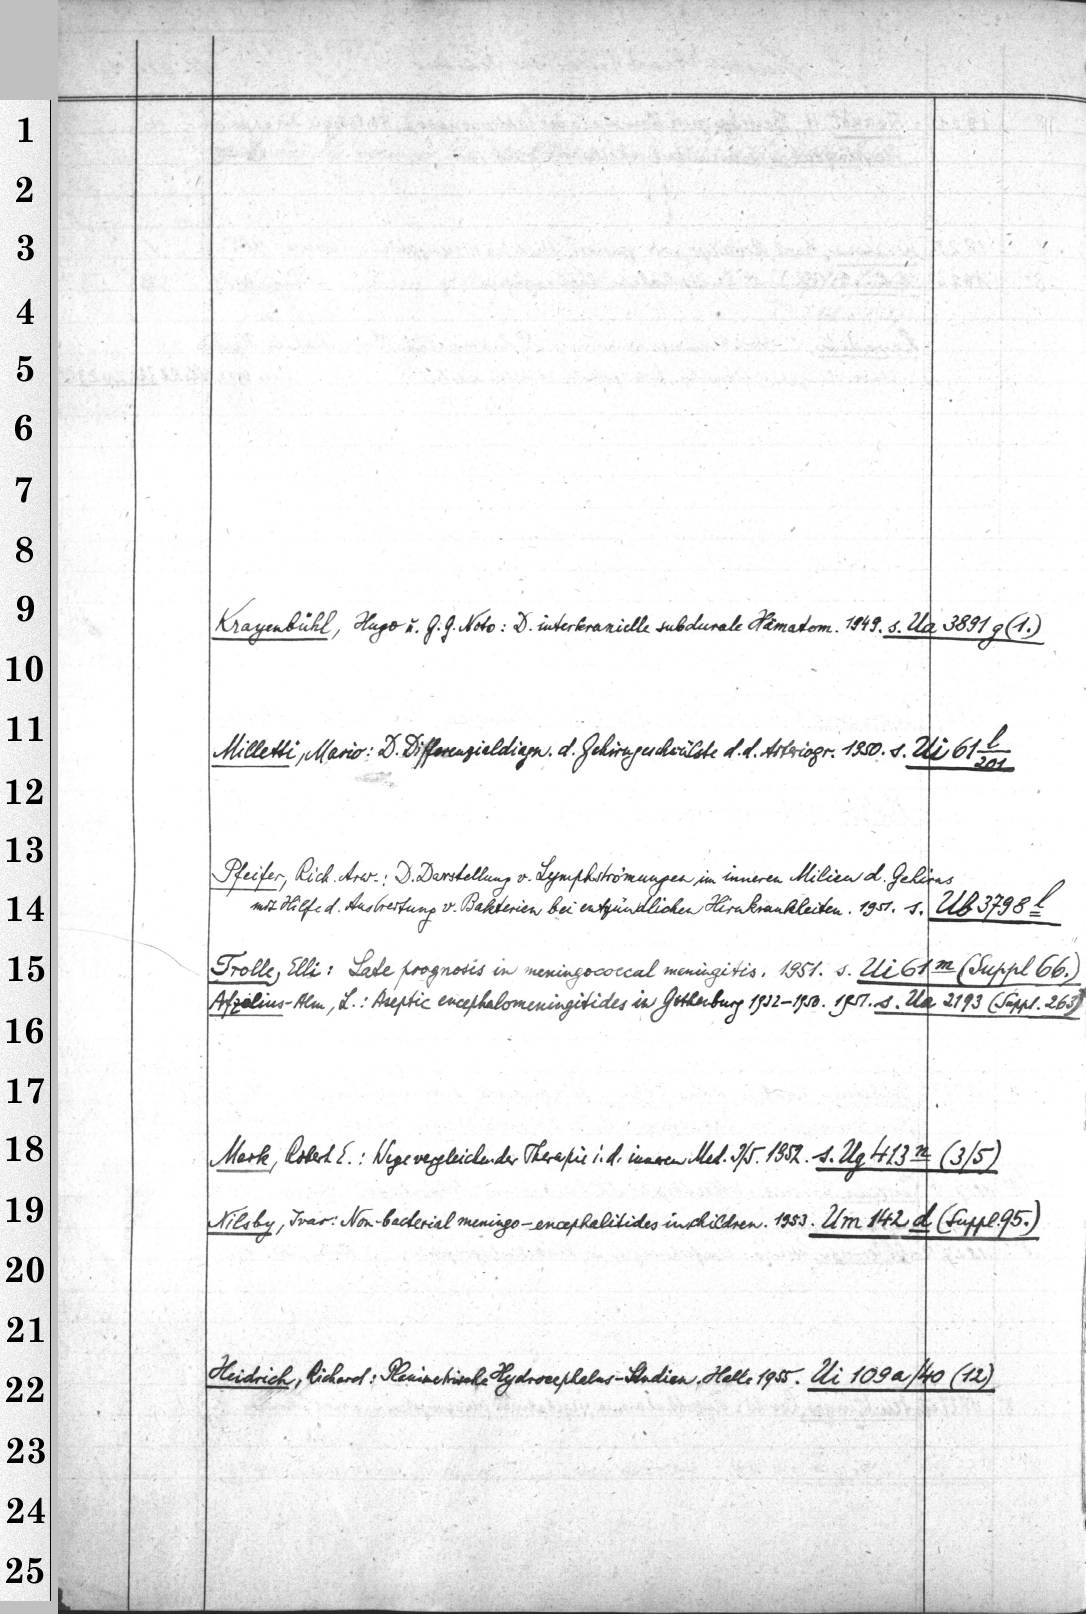 1
2
3
4
5
6
7
8
9
Krayenbühl, Hugo u. G. G. Noto: D. interkranielle subdurale Hämatom. 1949. s. Ua 3891 g (1.)
10
11
Milletti, Mario: D. Differenzialdiagn. d. Gehirngeschwülste d. d. Arteriogr. 1950. s. Ui 61 l/201
12
13
Pfeifer, Rich. Arw.: D. Darstellung v. Lymphströmungen im inneren Milieu d. Gehirns
14
mit Hilfe d. Ausbreitung v. Bakterien bei entzündlichen Hirnkrankheiten. 1951. s. Ub 3798 l
15
Trolle, Elli: Late prognosis in meningococcal meningitis. 1951. s. Ui 61 m (Suppl 66.)
Afzelius-Alm, L.: Aseptic encephalomeningitides in Gothenburg 1932-1950. 1951. s. Ua 2193 (Suppl. 263)
16
17
18
Mark, Robert E.: Wege vergleichender Therapie i. d. inneren Med. 3/5. 1952. s. Ug 413 n (3/5)
19
Nilsby, Ivar: Non-bacterial meningo-encephalitides in children. 1953. Um 142 d (Suppl. 95.)
20
21
22
Heidrich, Richard: Planimetrische Hydrocephalus-Studien. Halle 1955. Ui 109a/40 (12)
23
24
25